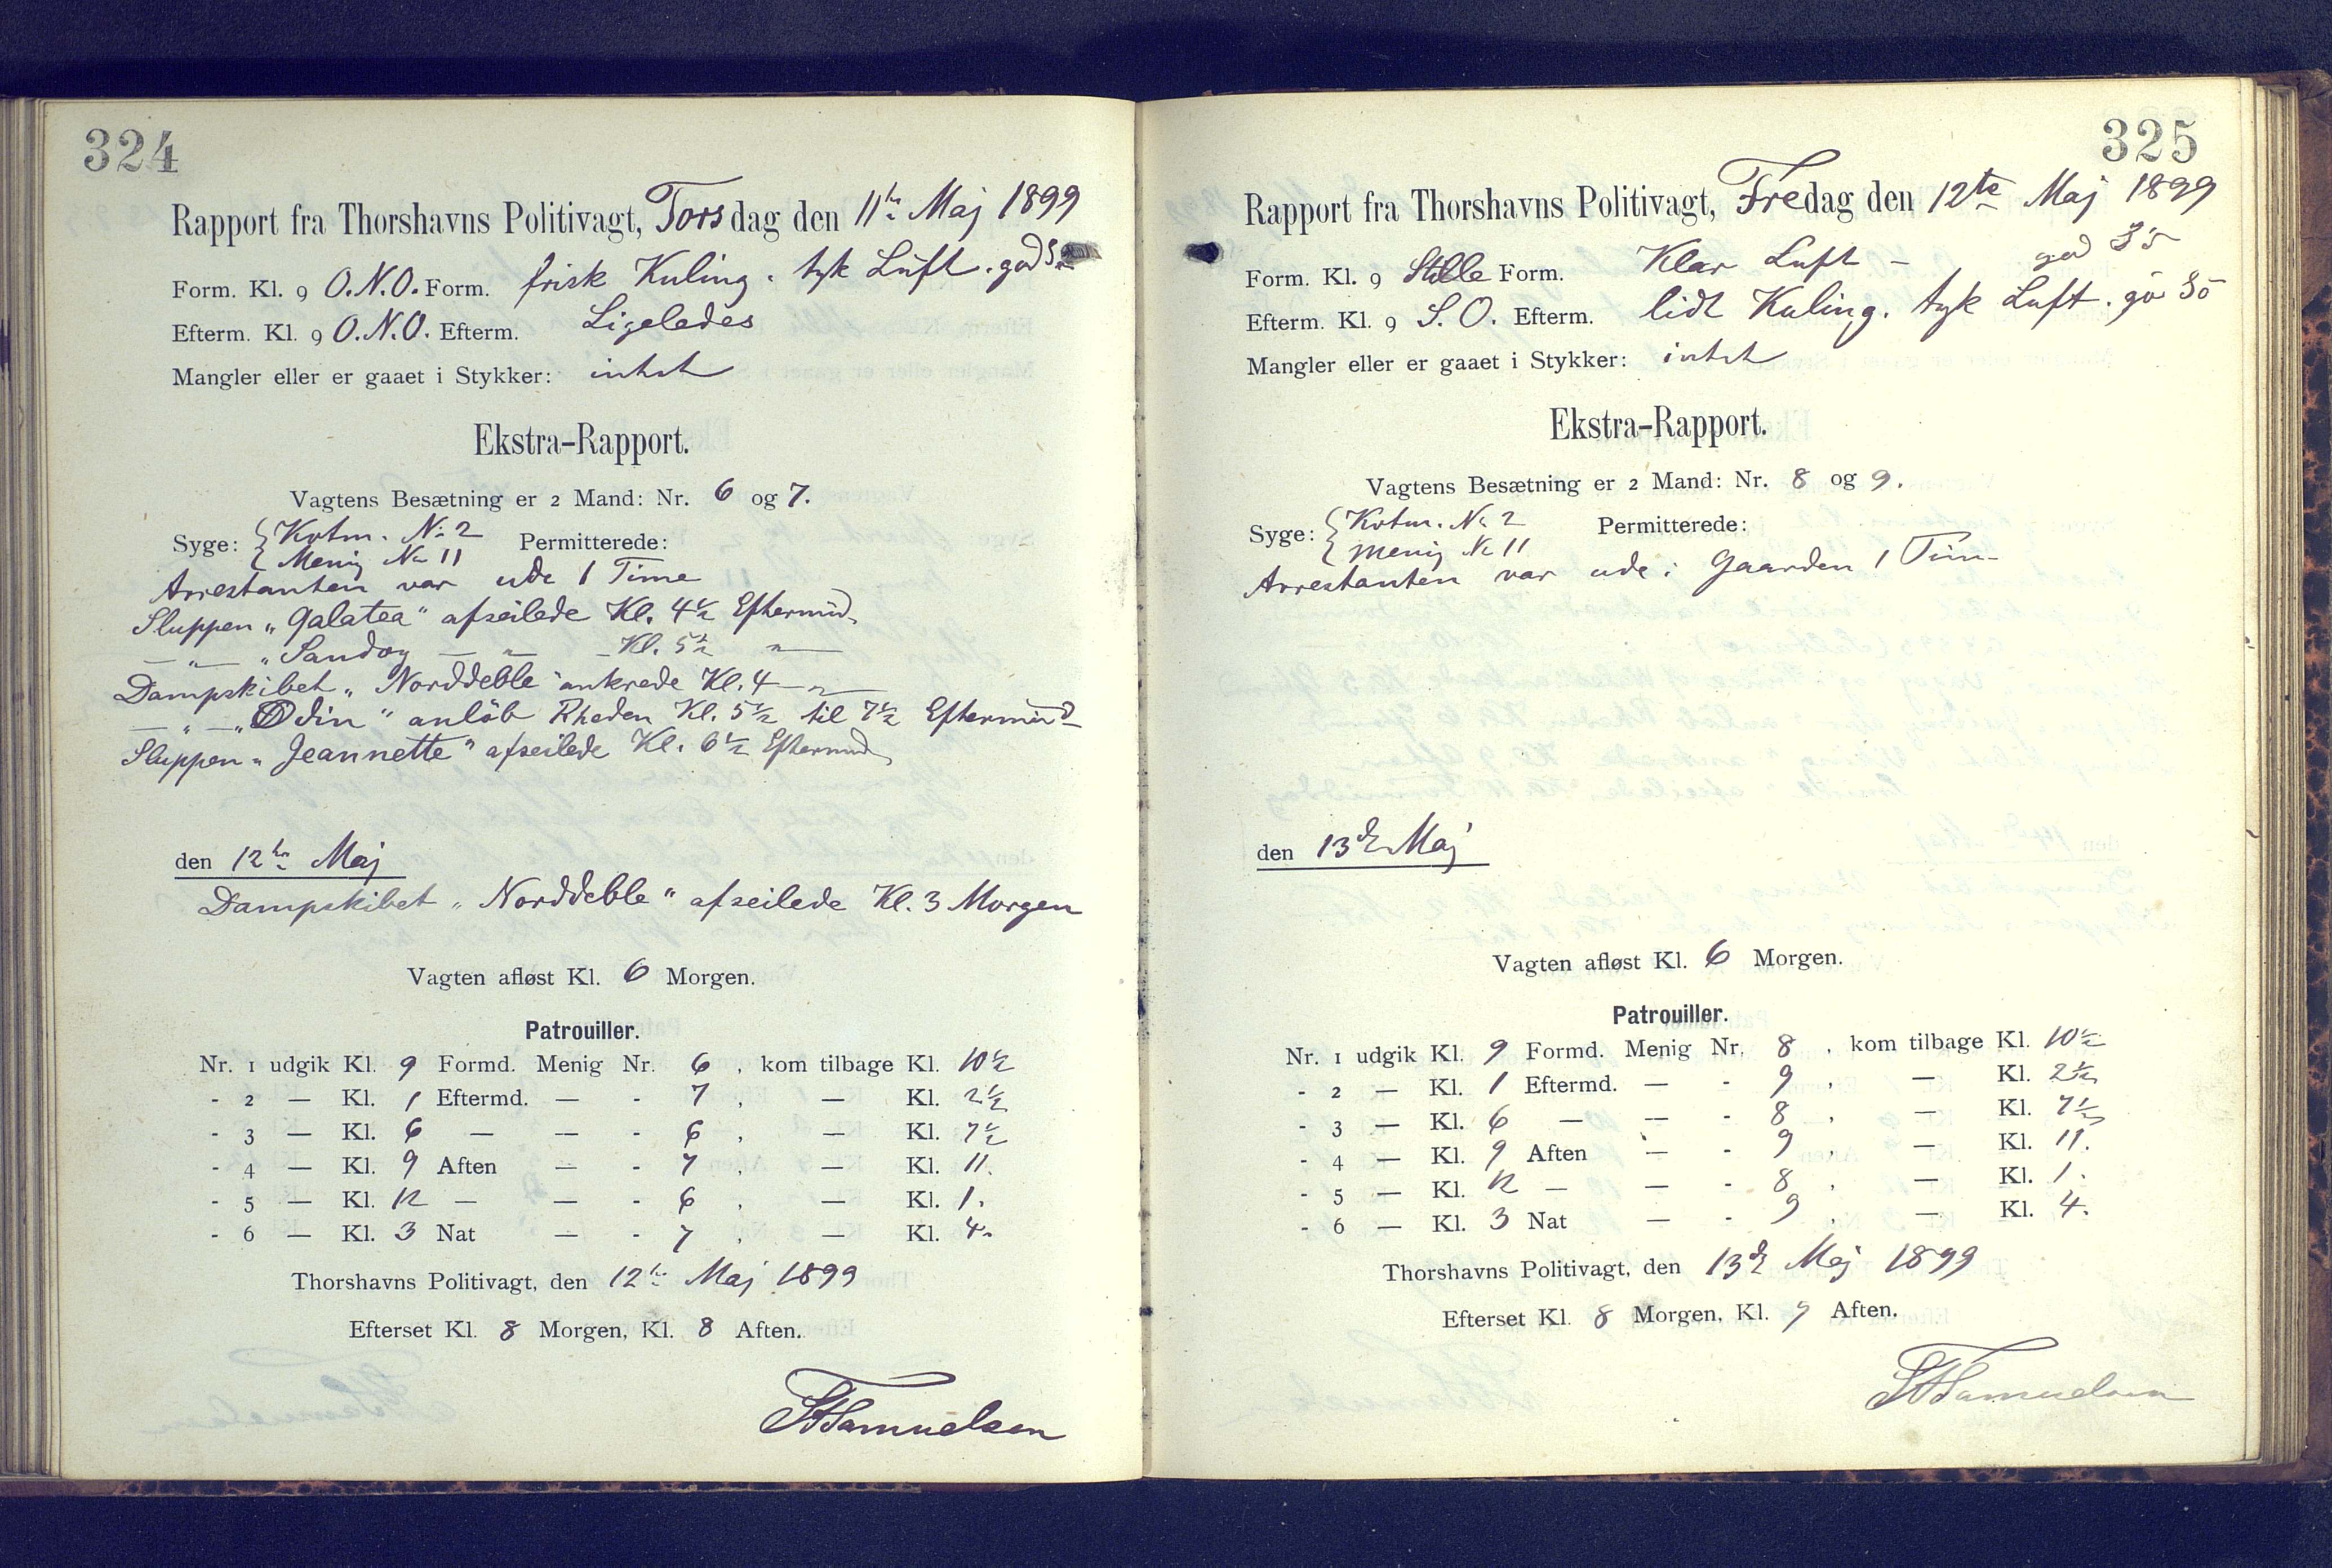 324
Rapport fra Thorshavns Politivagt, Torsdag den 11te Maj 1899
Form. Kl. 9 O.N.O. Form. frisk Kuling. tyk Luft. god Sö
Efterm. Kl. 9 O.N.O. Efterm. Ligeledes
Mangler eller er gaaet i Stykker: intet
Ekstra-Rapport.
Vagtens Besætning er 2 Mand: Nr. 6 og 7.
Syge: { Kvtm. No 2 Permitterede:
{ Menig No 11
Arrestanten var ude 1 Time
Sluppen „Galatea" afseilede Kl. 4½ Eftermid.
— „ — „Sandoy — „ — Kl. 5½ — „ —
Dampskibet „Norddeble" ankrede Kl. 4 — „ —
— „ — „Odin" anlöb Rheden Kl. 5½ til 7½ Eftermid
Sluppen „Jeannette" afseilede Kl. 6½ Eftermid
den 12te Maj
Dampskibet „Norddeble" afseilede Kl. 3 Morgen
Vagten afløst Kl. 6 Morgen.
Patrouiller.
Nr. 1 udgik Kl. 9 Formd. Menig Nr. 6, kom tilbage Kl. 10½
- 2 — Kl. 1 Eftermd. — - 7, — Kl. 2½
- 3 — Kl. 6 — — - 6, — Kl. 7½
- 4 — Kl. 9 Aften — - 7, — Kl. 11.
- 5 — Kl. 12 — — - 6, — Kl. 1.
- 6 — Kl. 3 Nat — - 7, — Kl. 4.
Thorshavns Politivagt, den 12te Maj 1899
Efterset Kl. 8 Morgen, Kl. 8 Aften.
Samuelsen
325
Rapport fra Thorshavns Politivagt, Fredag den 12te Maj 1899
Form. Kl. 9 Stille Form. Klar Luft - god Sö
Efterm. Kl. 9 S.O. Efterm. lidt Kuling. tyk Luft. go Sö
Mangler eller er gaaet i Stykker: intet
Ekstra-Rapport.
Vagtens Besætning er 2 Mand: Nr. 8 og 9.
Syge: { Kvtm. No 2 Permitterede:
{ Menig No 11
Arrestanten var ude i Gaarden 1 Time
den 13de Maj
Vagten afløst Kl. 6 Morgen.
Patrouiller.
Nr. 1 udgik Kl. 9 Formd. Menig Nr. 8, kom tilbage Kl. 10½
- 2 — Kl. 1 Eftermd. — - 9, — Kl. 2½
- 3 — Kl. 6 — — - 8, — Kl. 7½
- 4 — Kl. 9 Aften — - 9, — Kl. 11.
- 5 — Kl. 12 — — - 8, — Kl. 1.
- 6 — Kl. 3 Nat — - 9, — Kl. 4.
Thorshavns Politivagt, den 13de Maj 1899
Efterset Kl. 8 Morgen, Kl. 9 Aften.
Samuelsen